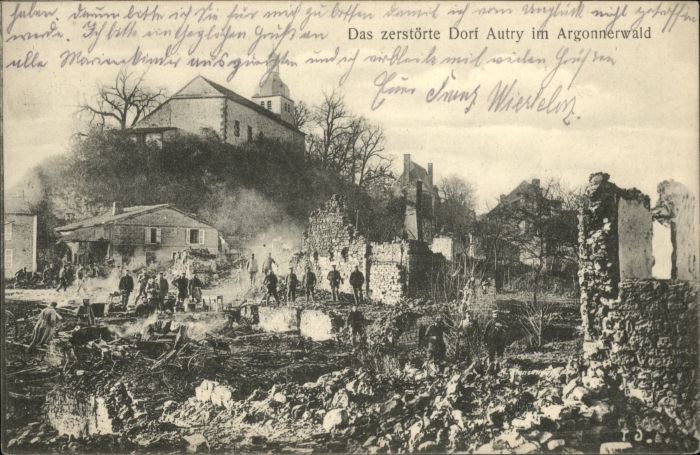 haben, darum bitte ich Sie für mich zu beten damit ich vom Unglück nicht getroffen
werde. Ich bitte ein Gruß an
Das zerstörte Dorf Autry im Argonnerwald
alle Marienkinder und ich verbleibe mit vielen Grüßen
Euer Franz